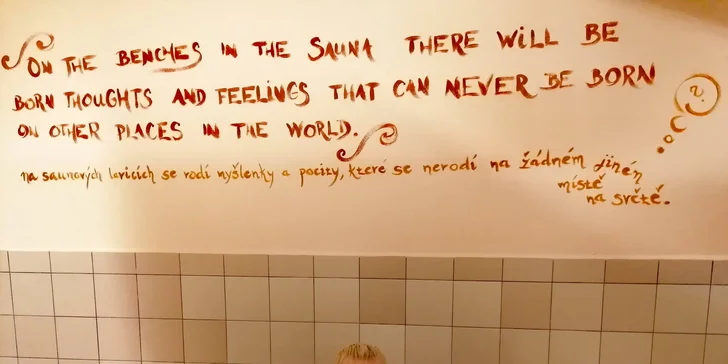 ON THE BENCHES IN THE SAUNA THERE WILL BE
BORN THOUGHTS AND FEELINGS THAT CAN NEVER BE BORN
ON OTHER PLACES IN THE WORLD.
?
na saunových lavicích se rodí myšlenky a pocity, které se nerodí na žádném jiném
místě
na světě.